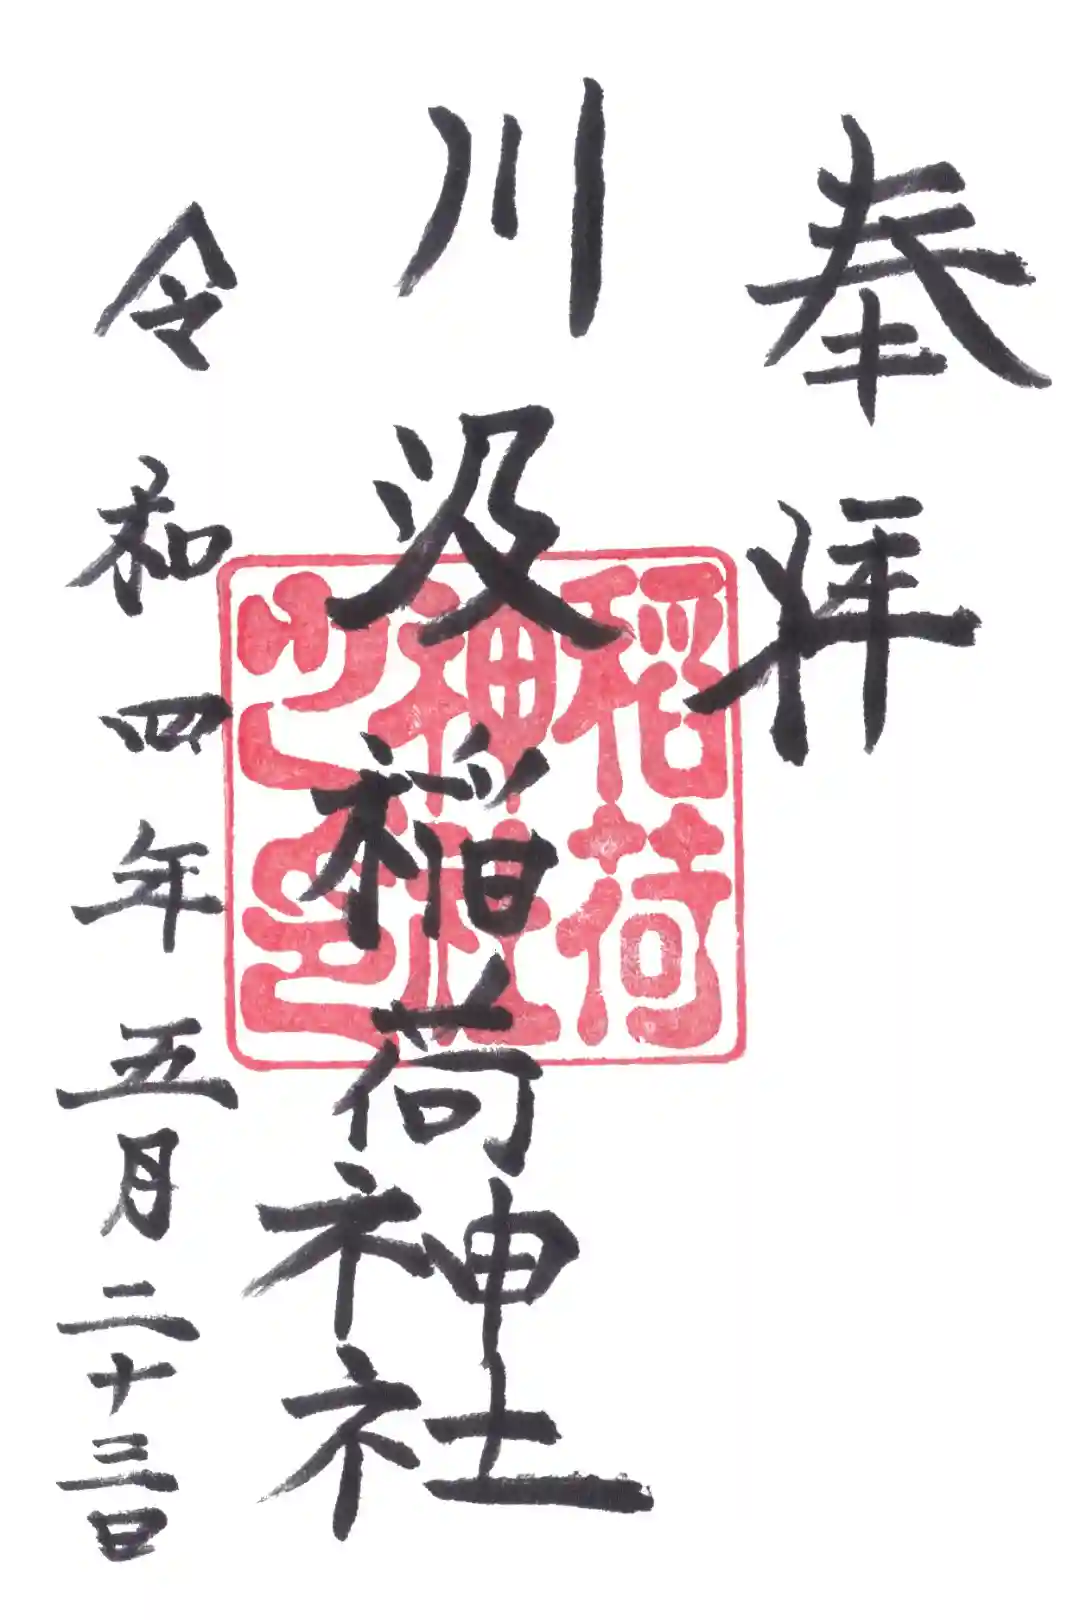 奉拝
川汲稲荷神社
令和四年五月二十三日
稲荷
神社
之印